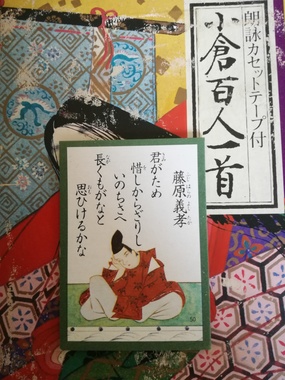 朗詠カセットテープ付
小倉百人一首
藤原義孝
君がため
惜しからざりし
いのちさへ
長くもがなと
思ひけるかな